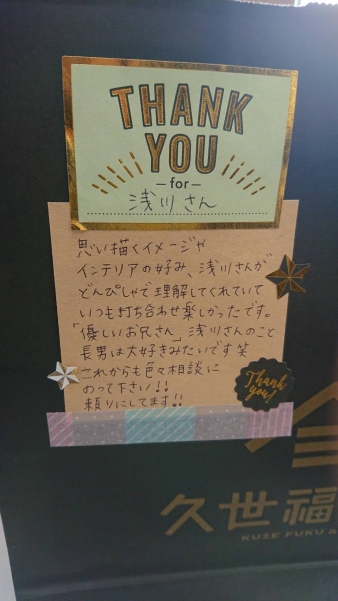 THANK
YOU
for
浅川さん
思い描くイメージや
インテリアの好み、浅川さんが
どんぴしゃで理解してくれていて
いつも打ち合わせ楽しかったです。
「優しいお兄さん」浅川さんのこと
長男は大好きみたいです笑
これからも色々相談に
のって下さい!!
頼りにしてます!!
Thank
you!
久世福
KUZE FUKU &